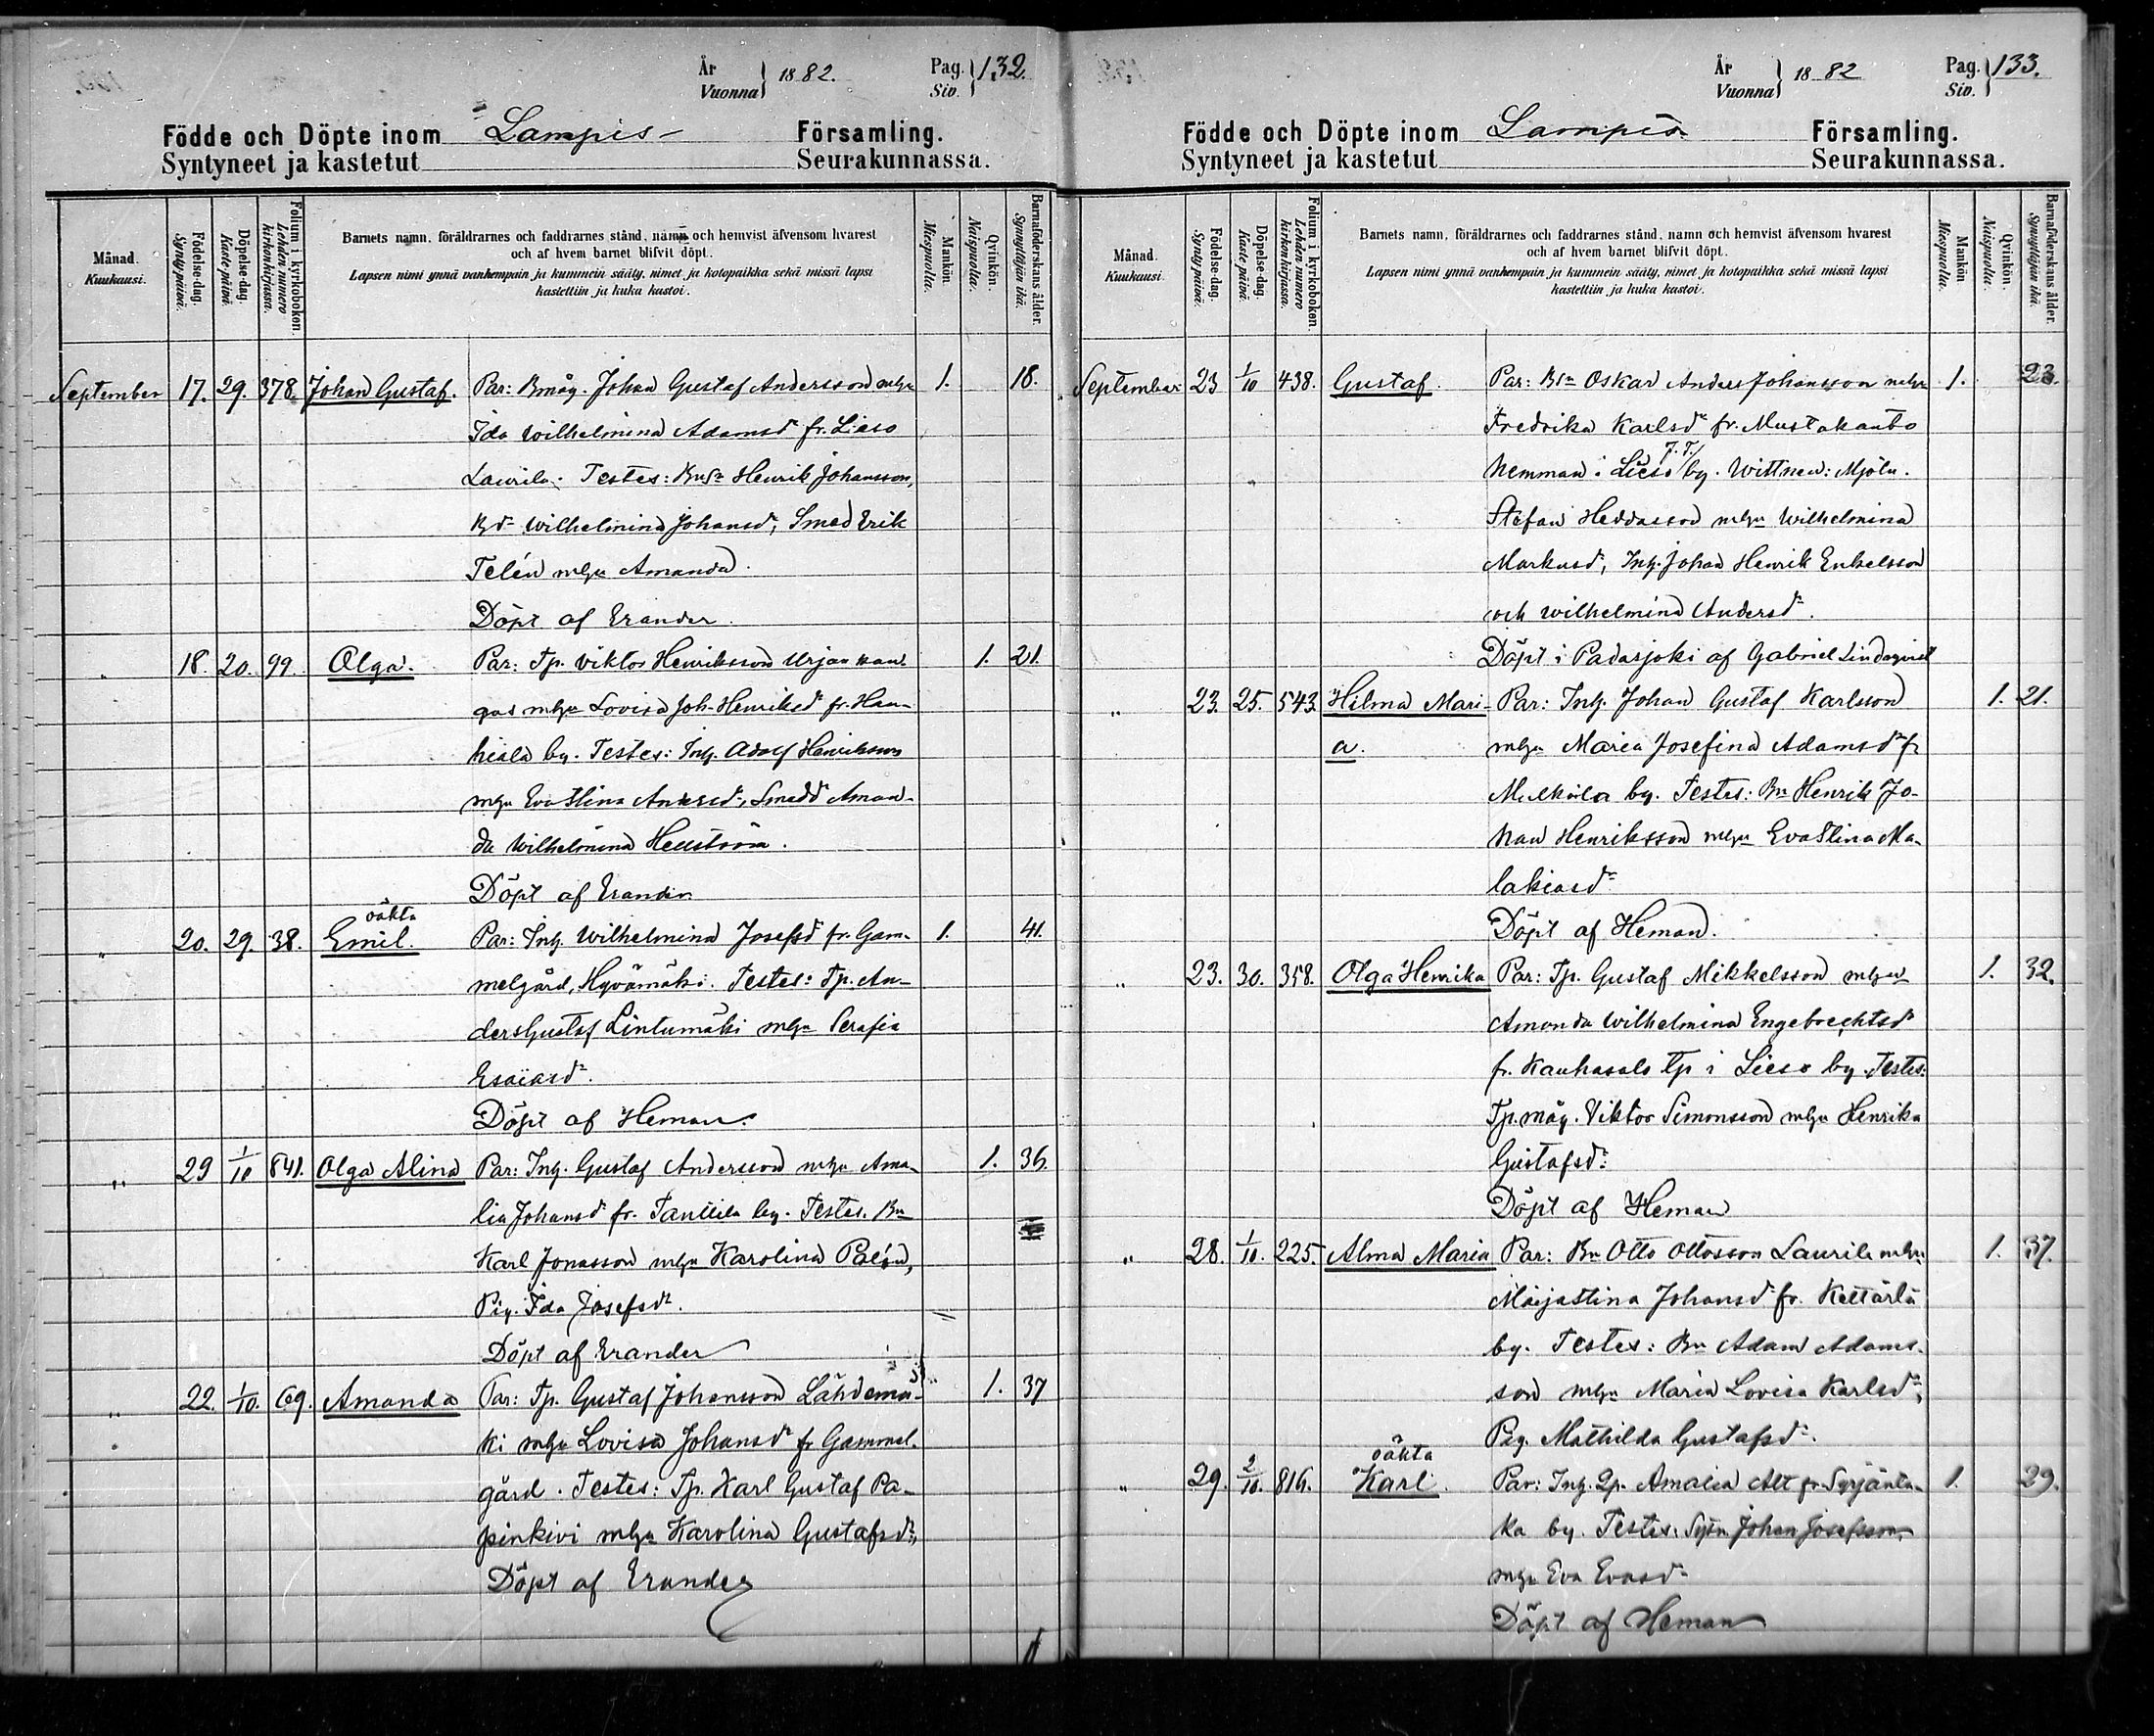 År
Vuonna } 1882. Pag. Siv. } 132.
Födde och Döpte inom Lampis Församling.
Syntyneet ja kastetut Seurakunnassa.
Månad. Kuukausi.
Födelse-dag. Synty-päivä.
Döpelse-dag. Kaste-päivä.
Folium i kyrkoboken. Lehden numero kirkonkirjassa.
Barnets namn, föräldrarnes och faddrarnes stånd, namn och hemvist äfvensom hvarest
och af hvem barnet blifvit döpt.
Lapsen nimi ynnä vanhempain ja kummein sääty, nimet ja kotopaikka sekä missä lapsi
kastettiin ja kuka kastoi.
Mankön. Miespuolia.
Qvinkön. Naispuolia.
Barnaföderskans ålder. Synnyttäjän ikä.
September 17. 29. 378. Johan Gustaf. Par: Bmåg. Johan Gustaf Andersson mhu 1. 18.
Ida Wilhelmina Adamsdr fr. Lieso
Laurila. Testes: Henrik Johansson,
Bdr Wilhelmina Johansdr, Smed Erik
Telén mhu Amanda.
Döpt af Erander.
18. 20. 99. Olga. Par: Tp. Viktor Henriksson Urjankan- 1. 21.
gas mhu Lovisa Joh. Henriksdr fr. Hau-
hiala by. Testes: Inh. Adolf Henriksson
mhu Eva Stina Andersdr, Smedd Aman-
da Wilhelmina Hellström.
Döpt af Erander
oäkta
" 20. 29. 38. Emil. Par: Inh. Wilhelmina Josefsdr fr. Gam- 1. 41.
melgård, Hyvämäki. Testes: Tp. An-
ders Gustaf Lintumäki mhu Serafia
Esaiasdr.
Döpt af Heman.
" 29 1/10 841. Olga Alina Par: Inh. Gustaf Andersson mhu Ama- 1. 36.
lia Johansdr fr. by. Testes. Bn
Karl Jonasson mhu Karolina Palén,
Pig. Ida Josefsdr.
Döpt af Erander
" 22. 1/10. 69. Amanda Par: Tp. Gustaf Johansson Lähdemä- 1. 37
ki mhu Lovisa Johansdr fr Gammel-
gård. Testes: Tp. Karl Gustaf Pa-
pinkivi mhu Karolina Gustafsdr,
Döpt af Erander
År
Vuonna } 1882 Pag. Siv. } 133.
Födde och Döpte inom Lampis Församling.
Syntyneet ja kastetut Seurakunnassa.
Månad. Kuukausi.
Födelse-dag. Synty-päivä.
Döpelse-dag. Kaste-päivä.
Folium i kyrkoboken. Lehden numero kirkonkirjassa.
Barnets namn, föräldrarnes och faddrarnes stånd, namn och hemvist äfvensom hvarest
och af hvem barnet blifvit döpt.
Lapsen nimi ynnä vanhempain ja kummein sääty, nimet ja kotopaikka sekä missä lapsi
kastettiin ja kuka kastoi.
Mankön Miespuolia.
Qvinkön. Naispuolia.
Barnaföderskans ålder. Synnyttäjän ikä.
September 23 1/10 438. Gustaf. Par: Oskar Anders Johansson mhu 1. 23.
Fredrika Karlsdr fr. Mustakanto
hemman i Lieso by. Wittnen: Mjöln.
Stefan Heddasson mhu Wilhelmina
Markusdr, Inh. Johan Henrik Enkelsson
och Wilhelmina Andersdr.
Döpt i Padasjoki af Gabriel Lindqvist
" 23. 25. 543 Hilma Mari- Par: Inh. Johan Gustaf Karlsson 1. 21.
a. mhu Maria Josefina Adamsdr fr
Mulkoila by. Testes: Bn Henrik Jo-
han Henriksson mhu Eva Stina Ma-
lakiasdr
Döpt af Heman.
" 23. 30. 358. Olga Henrika Par: Tp. Gustaf Mikkelsson mhu 1. 32.
Amanda Wilhelmina Engebrechtsdr
fr. Kauhasalo tp i Lieso by. Testes.
Tp. måg. Viktor Simonsson mhu Henrika
Gustafsdr.
Döpt af Heman
" 28. 1/10. 225. Alma Maria Par: Bn Otto Ottosson Laurila mhu 1. 37.
Maijastina Johansdr fr. Kettärlä
by. Testes: Bn Adam Adams-
son mhu Maria Lovisa Karlsdr,
Pig. Mathilda Gustafsdr.
oäkta
" 29. 2/10. 816. Karl. Par: Inh. Qp. Amalia Alt fr. Syrjänta- 1. 29.
ka by. Testes: Sytn. Johan Josefsson,
mhu Eva Evasdr
Döpt af Heman